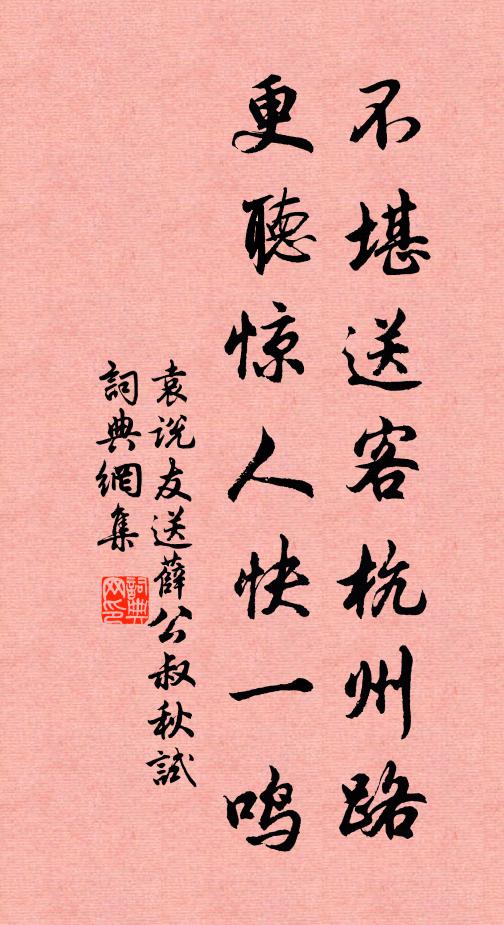 不堪送客杭州路
更聽惊人快一鸣
袁说友送薛公叔秋試
詞典網集
詞典网印